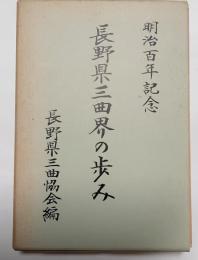 明治百年記念
長野県三曲界の歩み
長野県三曲協会編